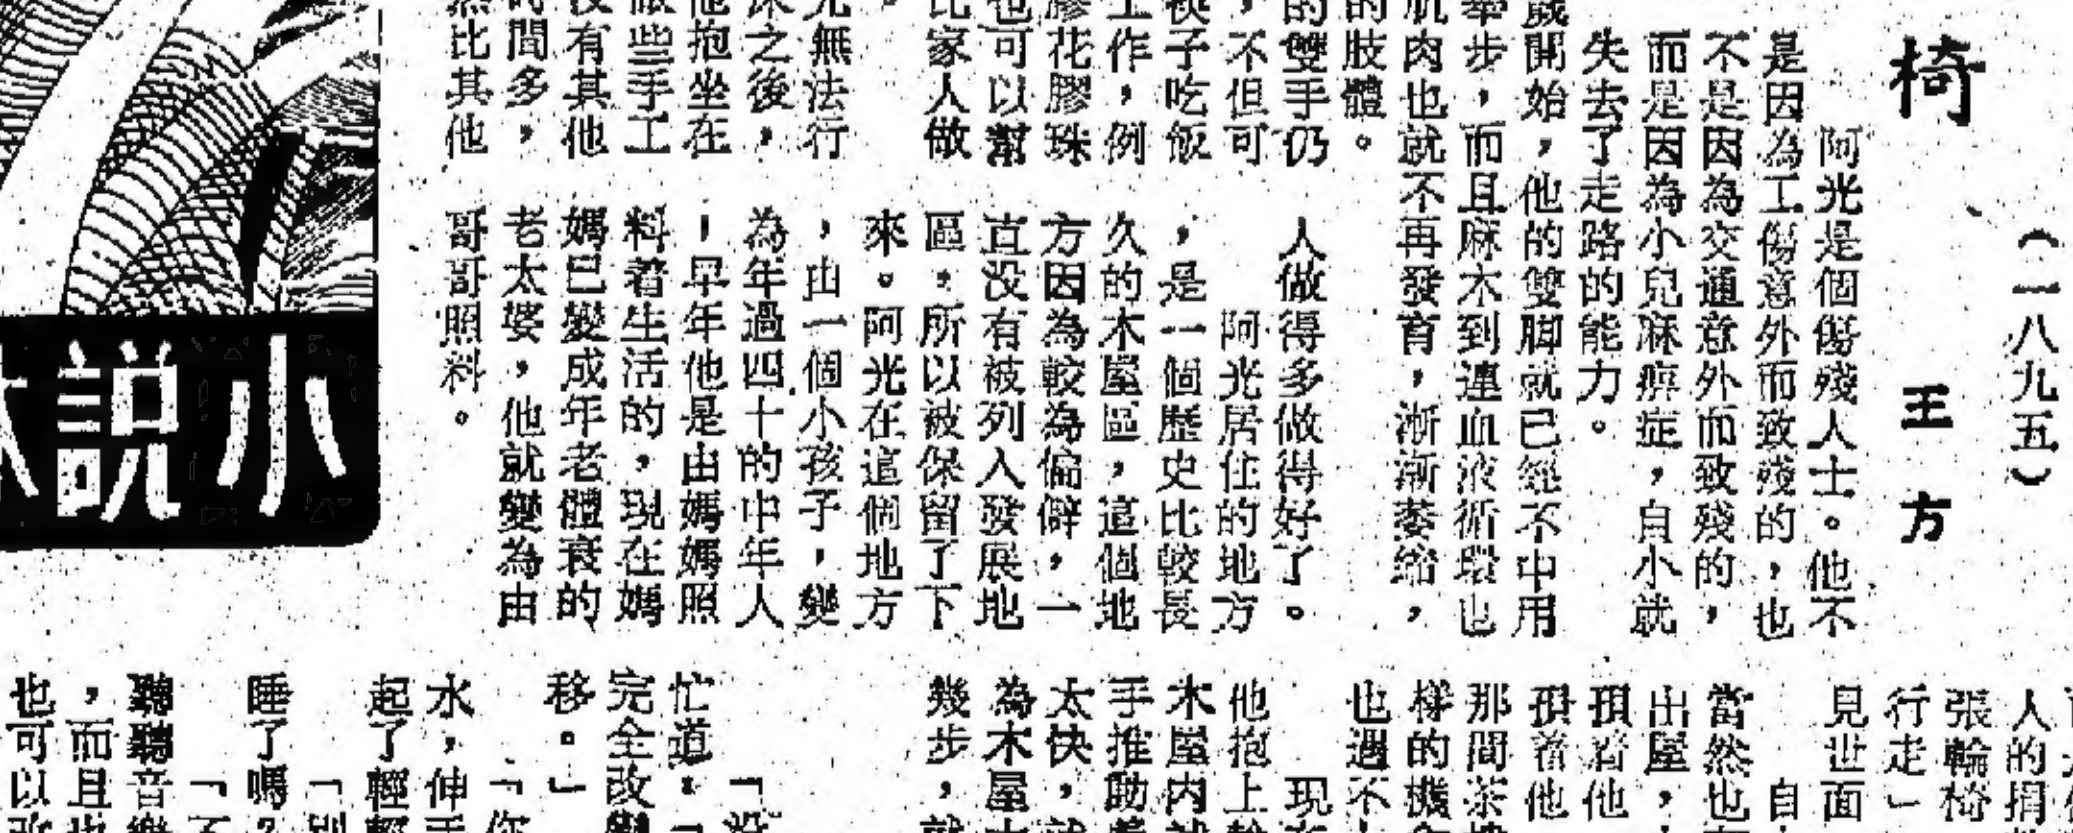 （一八九五）
椅
王方
阿光是個傷殘人士。他不
是因為工傷意外而致殘的，也
不是因為交通意外而致殘的，
而是因為小兒麻痺症，自小就
失去了走路的能力。
歲開始，他的雙脚就已經不中用
舉步，而且麻木到連血液循環也
肌肉也就不再發育，漸漸萎縮，
的肢體。
的雙手仍
，不但可
筷子吃飯
工作，例
膠花膠珠
也可以幫
比家人做
人做得多做得好了。
阿光居住的地方
，是一個歷史比較長
久的木屋區，這個地
方因為較為偏僻，一
直没有被列入發展地
區，所以被保留了下
來。阿光在這個地方
，由一個小孩子，變
為年過四十的中年人
！早年他是由媽媽照
料着生活的，現在媽
媽已變成年老體衰的
老太婆，他就變為由
哥哥照料。
光無法行
床之後，
他抱坐在
做些手工
没有其他
時間多，
然比其他
小説
人的捐
張輪椅
行走」
見世面
自
當然也
出屋，
揹着他
揹着他
那間茶
樣的機
也過不
現
他抱上
木屋内
手推動
太快，
為木屋
幾步，
「没
忙道：「
完全改變
移。」
「你
水，伸手
起了輕輕
「別
睡了嗎？
「不
聽聽音樂
，而且也
也可以改